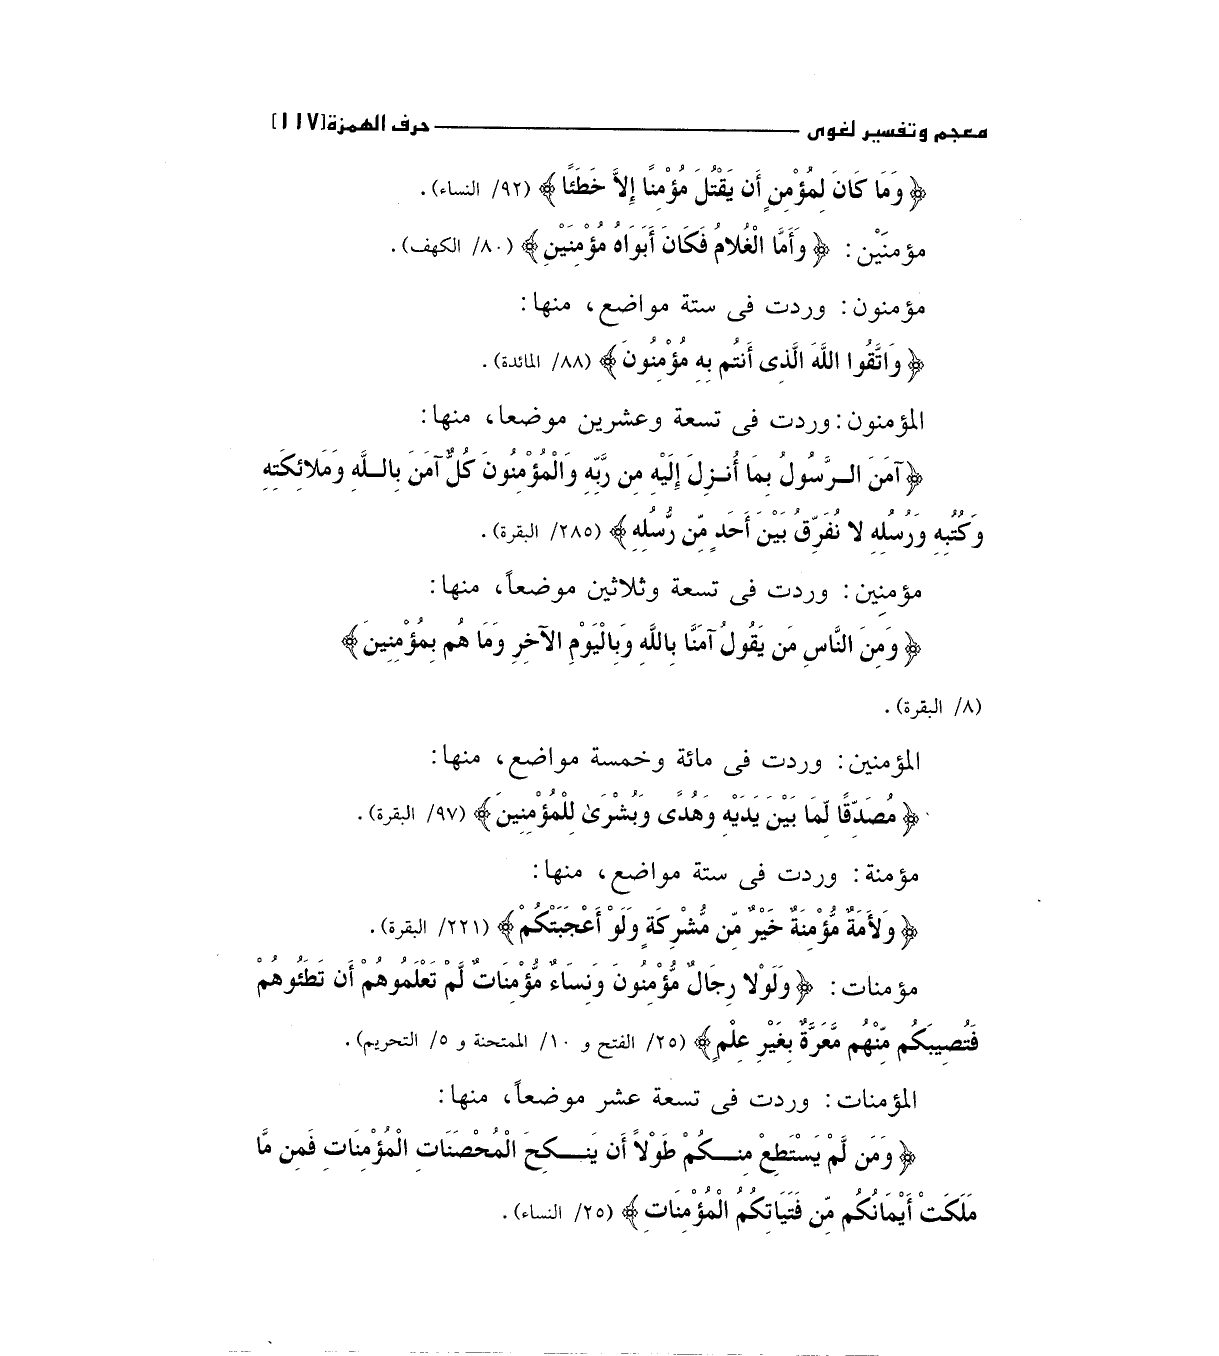 معجم وتفسير لغوى — حرف الهمزة [١١٧]
﴿وَمَا كَانَ لِمُؤْمِنٍ أَن يَقْتُلَ مُؤْمِنًا إِلاَّ خَطَئًا﴾ (٩٢/ النساء).
مؤمنَيْن: ﴿وَأَمَّا الْغُلامُ فَكَانَ أَبَوَاهُ مُؤْمِنَيْنِ﴾ (٨٠/ الكهف).
مؤمنون: وردت فى ستة مواضع، منها:
﴿وَاتَّقُوا اللَّهَ الَّذِى أَنتُم بِهِ مُؤْمِنُونَ﴾ (٨٨/ المائدة).
المؤمنون: وردت فى تسعة وعشرين موضعا، منها:
﴿آمَنَ الـرَّسُولُ بِمَا أُنـزِلَ إِلَيْهِ مِن رَّبِّهِ وَالْمُؤْمِنُونَ كُلٌّ آمَنَ بِالـلَّهِ وَمَلائِكَتِهِ
وَكُتُبِهِ وَرُسُلِهِ لا نُفَرِّقُ بَيْنَ أَحَدٍ مِّن رُّسُلِهِ﴾ (٢٨٥/ البقرة).
مؤمنِين: وردت فى تسعة وثلاثين موضعاً، منها:
﴿وَمِنَ النَّاسِ مَن يَقُولُ آمَنَّا بِاللَّهِ وَبِالْيَوْمِ الآخِرِ وَمَا هُم بِمُؤْمِنِينَ﴾
(٨/ البقرة).
المؤمنين: وردت فى مائة وخمسة مواضع، منها:
﴿مُصَدِّقًا لِّمَا بَيْنَ يَدَيْهِ وَهُدًى وَبُشْرَىٰ لِلْمُؤْمِنِينَ﴾ (٩٧/ البقرة).
مؤمنة: وردت فى ستة مواضع، منها:
﴿وَلأَمَةٌ مُّؤْمِنَةٌ خَيْرٌ مِّن مُّشْرِكَةٍ وَلَوْ أَعْجَبَتْكُمْ﴾ (٢٢١/ البقرة).
مؤمنات: ﴿وَلَوْلا رِجَالٌ مُّؤْمِنُونَ وَنِسَاءٌ مُّؤْمِنَاتٌ لَّمْ تَعْلَمُوهُمْ أَن تَطَئُوهُمْ
فَتُصِيبَكُم مِّنْهُم مَّعَرَّةٌ بِغَيْرِ عِلْمٍ﴾ (٢٥/ الفتح و ١٠/ الممتحنة و ٥/ التحريم).
المؤمنات: وردت فى تسعة عشر موضعاً، منها:
﴿وَمَن لَّمْ يَسْتَطِعْ مِنـكُمْ طَوْلاً أَن يَنـكِحَ الْمُحْصَنَاتِ الْمُؤْمِنَاتِ فَمِن مَّا
مَلَكَتْ أَيْمَانُكُم مِّن فَتَيَاتِكُمُ الْمُؤْمِنَاتِ﴾ (٢٥/ النساء).